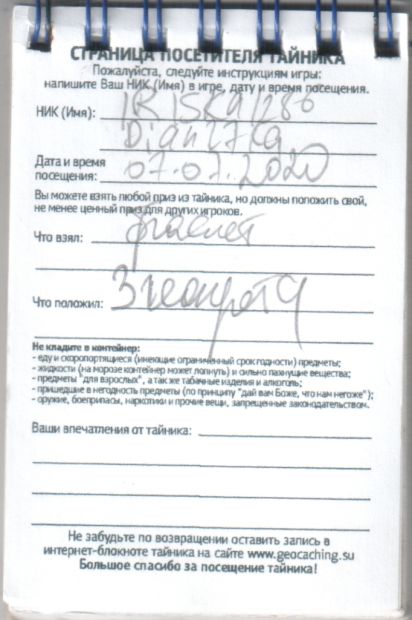 СТРАНИЦА ПОСЕТИТЕЛЯ ТАЙНИКА
Пожалуйста, следуйте инструкциям игры:
напишите Ваш НИК (Имя) в игре, дату и время посещения.
НИК (Имя): IRISKA1286
Dianızka
Дата и время
посещения: 07.07.2020
Вы можете взять любой приз из тайника, но должны положить свой,
не менее ценный приз для других игроков.
Что взял: браслет
Что положил: 3
Не кладите в контейнер:
- еду и скоропортящиеся (имеющие ограниченный срок годности) предметы;
- жидкости (на морозе контейнер может лопнуть) и сильно пахнущие вещества;
- предметы "для взрослых", а так же табачные изделия и алкоголь;
- пришедшие в негодность предметы (по принципу "дай вам Боже, что нам негоже");
- оружие, боеприпасы, наркотики и прочие вещи, запрещенные законодательством.
Ваши впечатления от тайника:
Не забудьте по возвращении оставить запись в
интернет-блокноте тайника на сайте www.geocaching.su
Большое спасибо за посещение тайника!